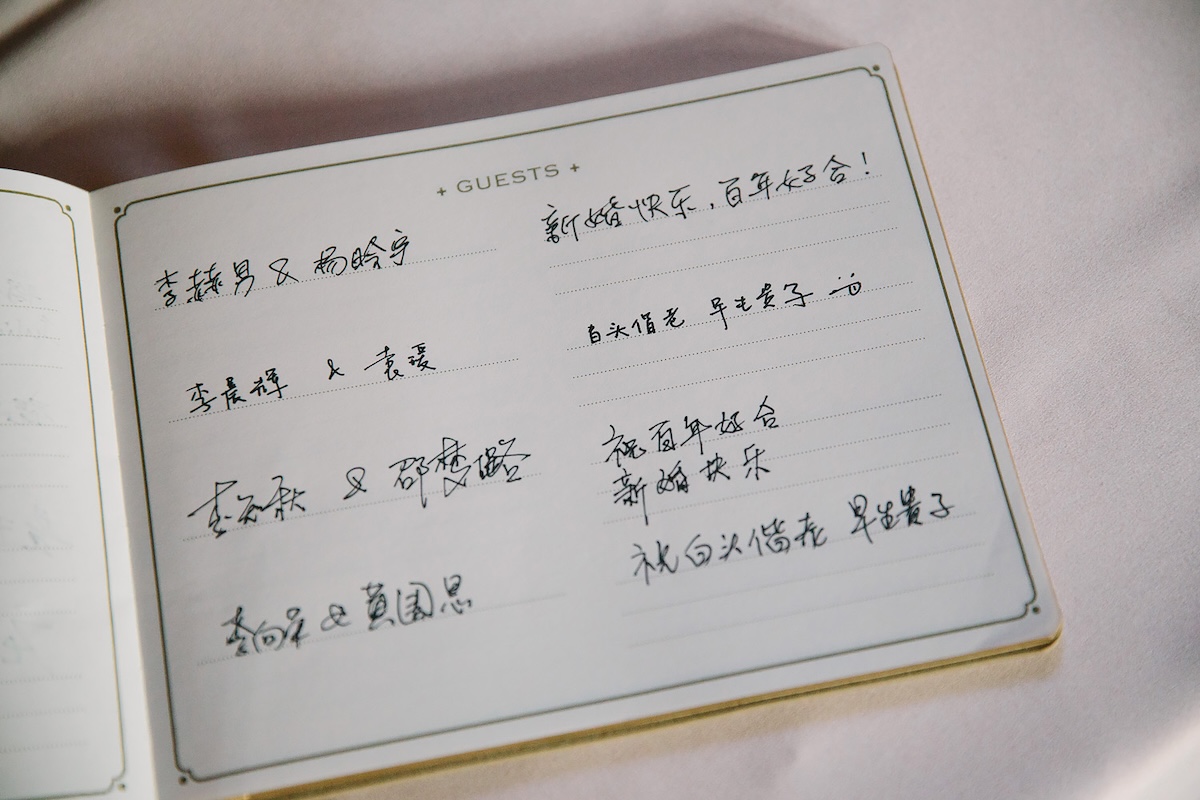 + GUESTS +
李赫男 & 杨晗宇
新婚快乐,百年好合!
李晨辉 & 袁瑗
白头偕老 早生贵子
李知秋 & 邵梦璐
祝百年好合
新婚快乐
李向荣 & 黄国恩
祝白头偕老 早生贵子